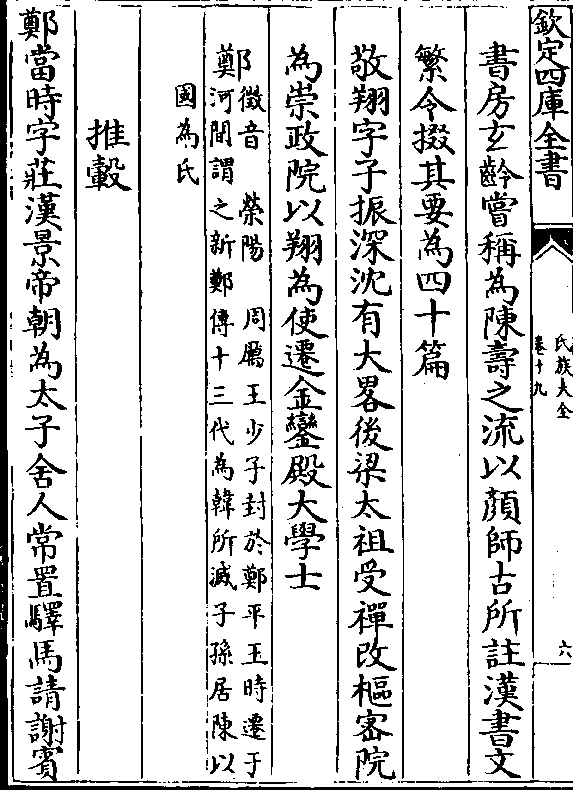 欽定四庫全書
氏族大全
卷十九
六
書房玄齡嘗稱為陳壽之流以顏師古所註漢書文
繁令掇其要為四十篇
敬翔字子振深沈有大畧後梁太祖受禪改樞密院
為崇政院以翔為使遷金鑾殿大學士
鄭
徵音　滎陽　周厲王少子封於鄭平王時遷于
河間謂之新鄭傳十三代為韓所滅子孫居陳以
國為氏
推轂
鄭當時字莊漢景帝朝為太子舍人常置驛馬請謝賓